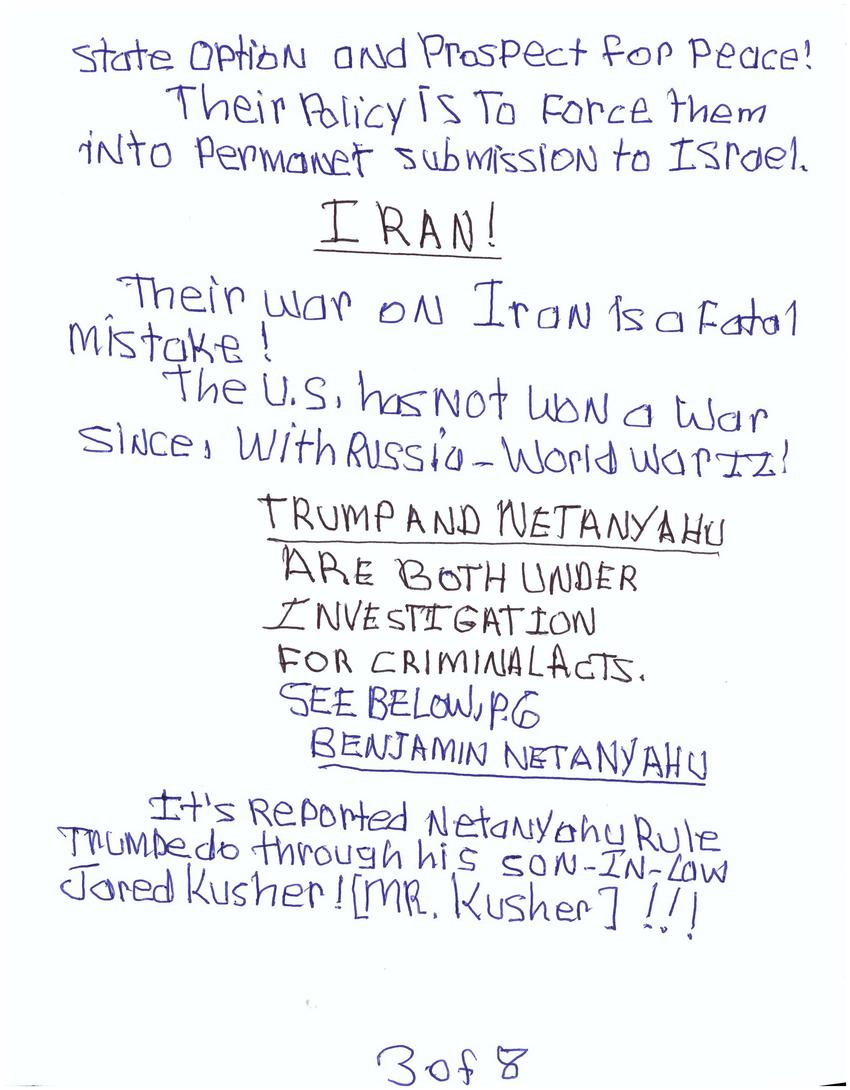 State Option and Prospect for Peace!
Their Policy is To Force them
into Permanet submission to Israel.
IRAN!
Their war on Iran is a Fatal
mistake!
The U.S. has Not won a war
since, with Russia - World War II!
TRUMP AND NETANYAHU
ARE BOTH UNDER
INVESTIGATION
FOR CRIMINAL ACTS.
SEE BELOW, P.6
BENJAMIN NETANYAHU
It's Reported Netanyahu Rule
Trumpedo through his SON-IN-LAW
Jared Kusher! [MR. Kusher] !!!
3 of 8